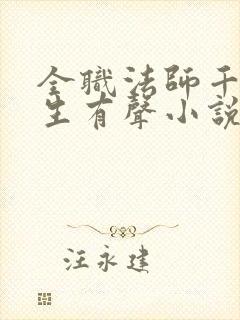 全職法師千
生有聲小說
汪永建